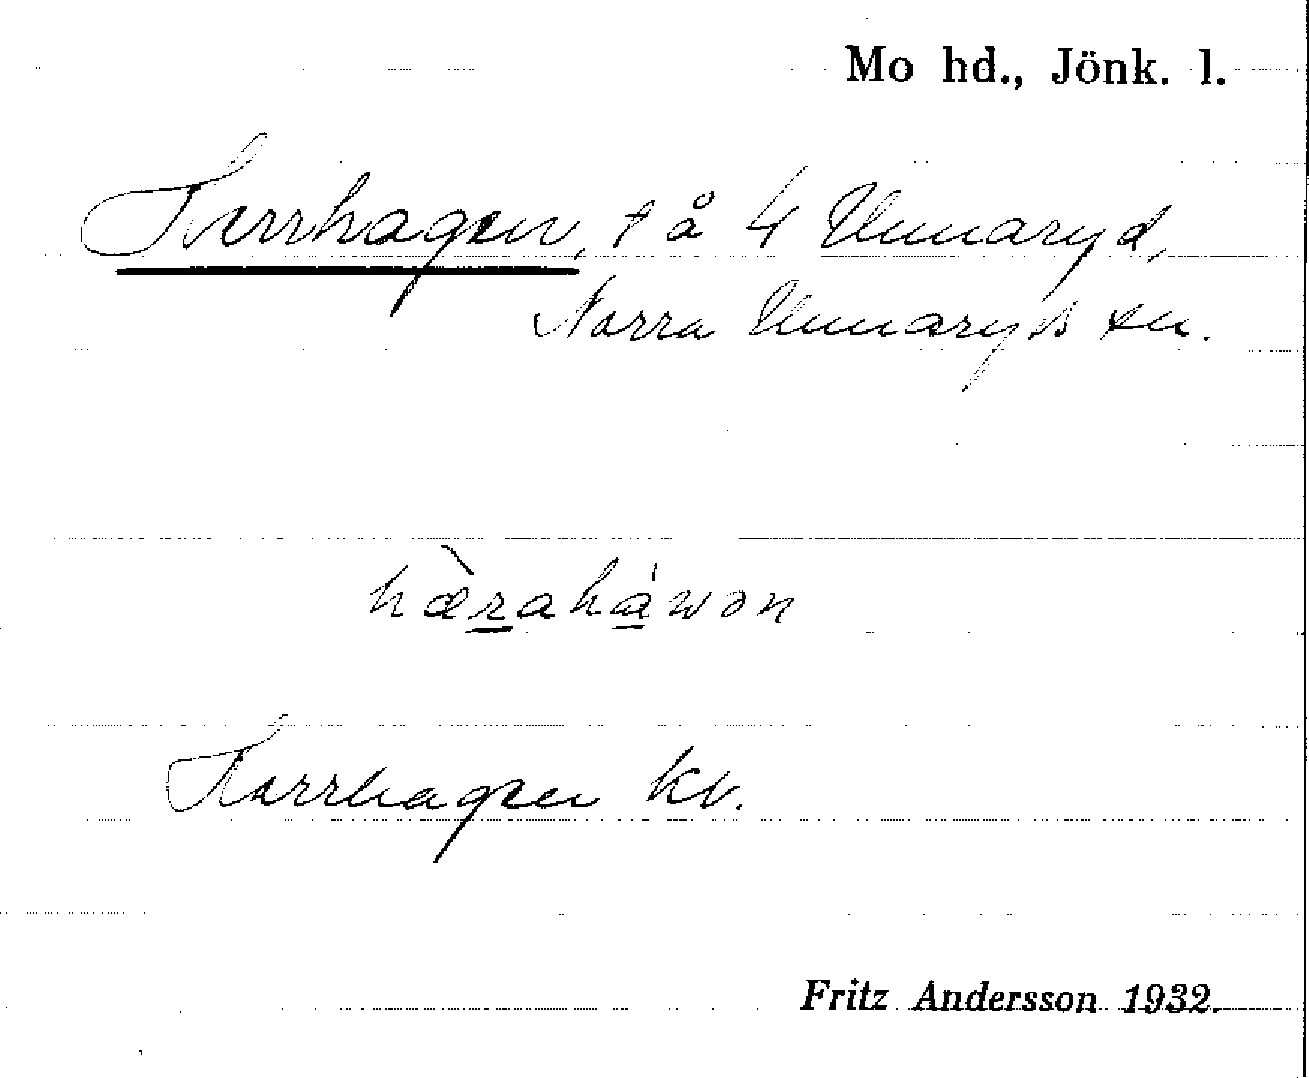 Mo hd., Jönk. l.
Herrhagen, t å 4 Unnaryd,
Norra Unnaryds sn.
hæ̀raháwən
Harrhagen kv.
Fritz Andersson 1932.